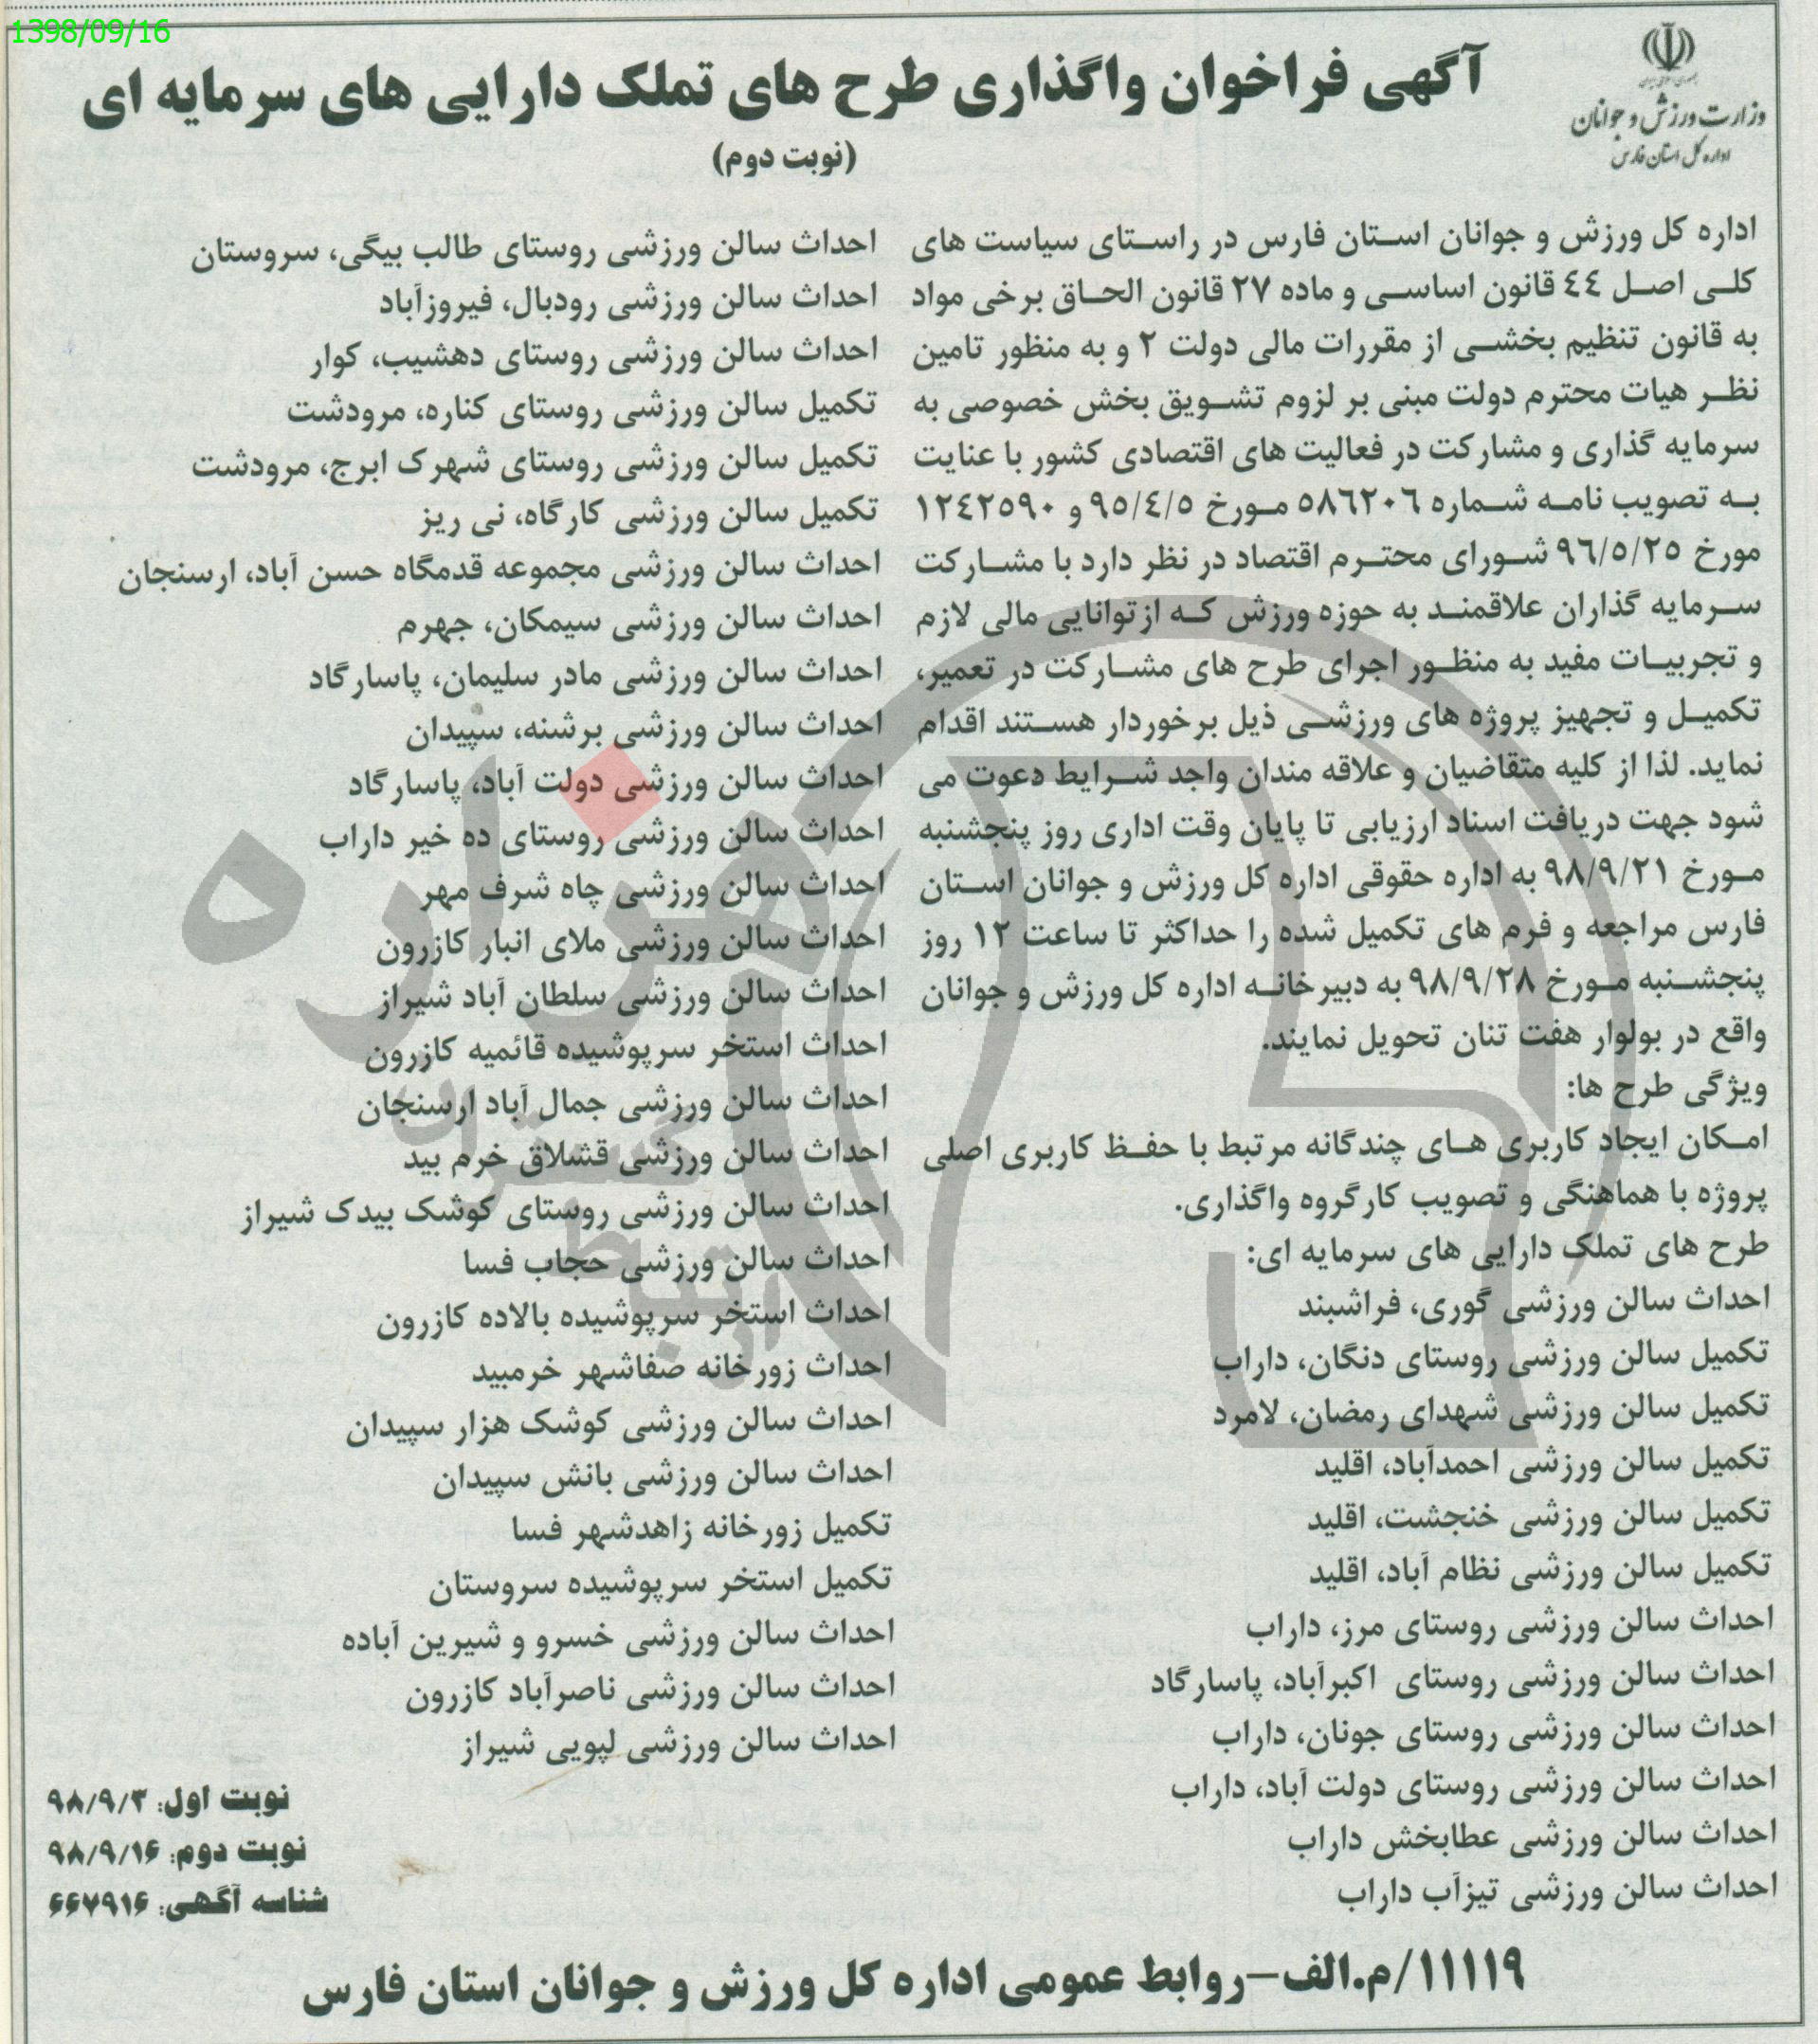 1398/09/16
جمهوری اسلامی ایران
وزارت ورزش و جوانان
اداره کل استان فارس
آگهی فراخوان واگذاری طرح های تملک دارایی های سرمایه ای
(نوبت دوم)
اداره کل ورزش و جوانان استان فارس در راستای سیاست های
کلی اصل ٤٤ قانون اساسی و ماده ۲۷ قانون الحاق برخی مواد
به قانون تنظیم بخشی از مقررات مالی دولت ۲ و به منظور تامین
نظر هیات محترم دولت مبنی بر لزوم تشویق بخش خصوصی به
سرمایه گذاری و مشارکت در فعالیت های اقتصادی کشور با عنایت
به تصویب نامه شماره ٥٨٦٢٠٦ مورخ ٩٥/٤/٥ و ١٢٤٢٥٩٠
مورخ ٩٦/٥/٢٥ شورای محترم اقتصاد در نظر دارد با مشارکت
سرمایه گذاران علاقمند به حوزه ورزش که از توانایی مالی لازم
و تجربیات مفید به منظور اجرای طرح های مشارکت در تعمیر،
تکمیل و تجهیز پروژه های ورزشی ذیل برخوردار هستند اقدام
نماید. لذا از کلیه متقاضیان و علاقه مندان واجد شرایط دعوت می
شود جهت دریافت اسناد ارزیابی تا پایان وقت اداری روز پنجشنبه
مورخ ٩٨/٩/٢١ به اداره حقوقی اداره کل ورزش و جوانان استان
فارس مراجعه و فرم های تکمیل شده را حداکثر تا ساعت ١٢ روز
پنجشنبه مورخ ٩٨/٩/٢٨ به دبیرخانه اداره کل ورزش و جوانان
واقع در بولوار هفت تنان تحویل نمایند.
ویژگی طرح ها:
امکان ایجاد کاربری های چندگانه مرتبط با حفظ کاربری اصلی
پروژه با هماهنگی و تصویب کارگروه واگذاری.
طرح های تملک دارایی های سرمایه ای:
احداث سالن ورزشی گوری، فراشبند
تکمیل سالن ورزشی روستای دنگان، داراب
تکمیل سالن ورزشی شهدای رمضان، لامرد
تکمیل سالن ورزشی احمدآباد، اقلید
تکمیل سالن ورزشی خنجشت، اقلید
تکمیل سالن ورزشی نظام آباد، اقلید
احداث سالن ورزشی روستای مرز، داراب
احداث سالن ورزشی روستای اکبرآباد، پاسارگاد
احداث سالن ورزشی روستای جونان، داراب
احداث سالن ورزشی روستای دولت آباد، داراب
احداث سالن ورزشی عطابخش داراب
احداث سالن ورزشی تیزآب داراب
احداث سالن ورزشی روستای طالب بیگی، سروستان
احداث سالن ورزشی رودبال، فیروزآباد
احداث سالن ورزشی روستای دهشیب، کوار
تکمیل سالن ورزشی روستای کناره، مرودشت
تکمیل سالن ورزشی روستای شهرک ابرج، مرودشت
تکمیل سالن ورزشی کارگاه، نی ریز
احداث سالن ورزشی مجموعه قدمگاه حسن آباد، ارسنجان
احداث سالن ورزشی سیمکان، جهرم
احداث سالن ورزشی مادر سلیمان، پاسارگاد
احداث سالن ورزشی برشنه، سپیدان
احداث سالن ورزشی دولت آباد، پاسارگاد
احداث سالن ورزشی روستای ده خیر داراب
احداث سالن ورزشی چاه شرف مهر
احداث سالن ورزشی ملای انبار کازرون
احداث سالن ورزشی سلطان آباد شیراز
احداث استخر سرپوشیده قائمیه کازرون
احداث سالن ورزشی جمال آباد ارسنجان
احداث سالن ورزشی قشلاق خرم بید
احداث سالن ورزشی روستای کوشک بیدک شیراز
احداث سالن ورزشی حجاب فسا
احداث استخر سرپوشیده بالاده کازرون
احداث زورخانه صفاشهر خرمبید
احداث سالن ورزشی کوشک هزار سپیدان
احداث سالن ورزشی بانش سپیدان
تکمیل زورخانه زاهدشهر فسا
تکمیل استخر سرپوشیده سروستان
احداث سالن ورزشی خسرو و شیرین آباده
احداث سالن ورزشی ناصرآباد کازرون
احداث سالن ورزشی لپویی شیراز
نوبت اول: ۹۸/۹/۳
نوبت دوم: ۹۸/۹/۱۶
شناسه آگهی: ۶۶۷۹۱۶
۱۱۱۱۹/م.الف-روابط عمومی اداره کل ورزش و جوانان استان فارس
هزاره
گسترش
ارتباط